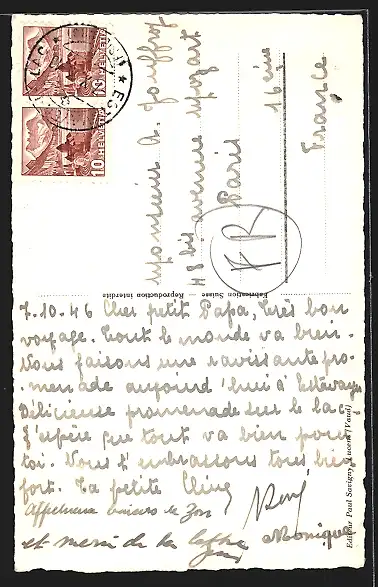 Monsieur A. Jouffroy
48 bis avenue Mozart
Paris
16 ème
France
FR
HELVETIA 10
HELVETIA 10
Fabrication Suisse
Reproduction Interdite
7.10.46 Cher petit Papa, très bon
voyage. Tout le monde va bien.
Nous faisons une ravissante pro-
menade aujourd'hui à Estavayer
Délicieuse promenade sur le lac
J'espère que tout va bien pour
toi. Nous t'embrassons tous bien
fort. Ta petite
Affectueux baisers de
et merci de la lettre
Monique
Editeur Paul Savigny, Lucens (Vaud)